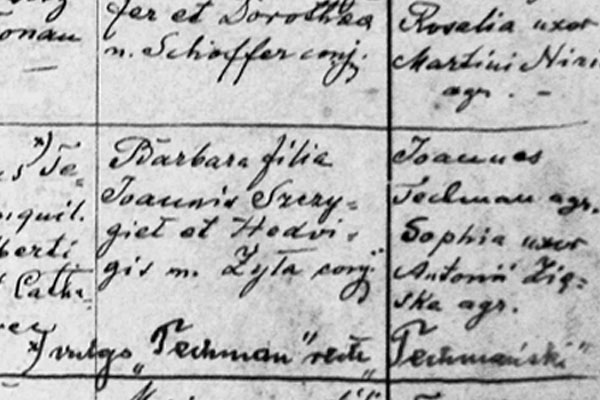 fer et Dorothea
n. Schoffer conj.
Rosalia uxor
Martini
agr. -
onau
*) Te-
inquil.
berti
Catha-
Barbara filia
Joannis Szczy-
giel et Hedvi-
gis n. Zyła conj.
Joannes
Techman agr.
Sophia uxor
Antonii Zię-
ska agr.
*) vulgo „Techman" recte „Techmański"